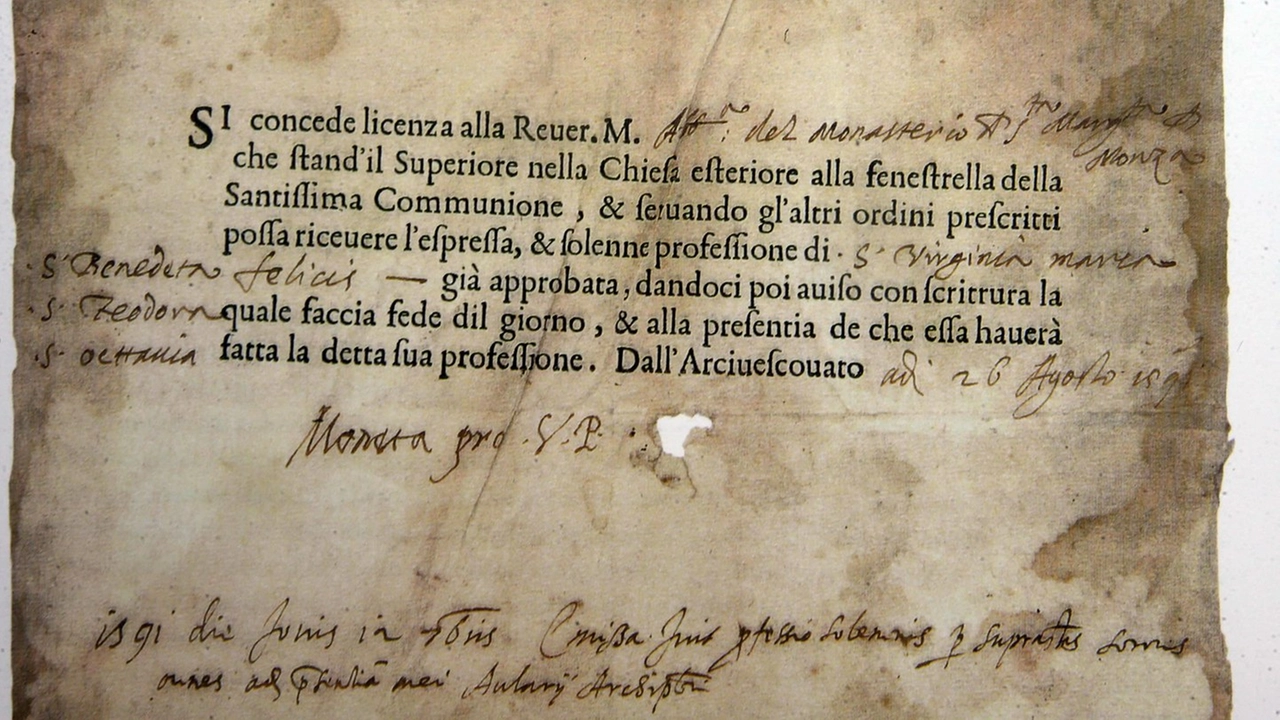 SI concede licenza alla Reuer. M. del Monasterio
Monza
che stand'il Superiore nella Chiesa esteriore alla fenestrella della
Santiſſima Communione, & seruando gl'altri ordini preſcritti
poſſa riceuere l'eſpreſſa, & ſolenne profeſſione di S Virginia maria
S Benedeta felicis — già approbata, dandoci poi auiſo con ſcrittura la
S Teodora quale faccia fede dil giorno, & alla preſentia de che eſſa hauerà
S ottauia fatta la detta ſua profeſſione. Dall'Arciueſcouato adi 26 Agosto 1591
Moneta pro V. P.
1591 die Jouis 12 7bris Emiſſa fuit solemnis sorores
omnes ad mei